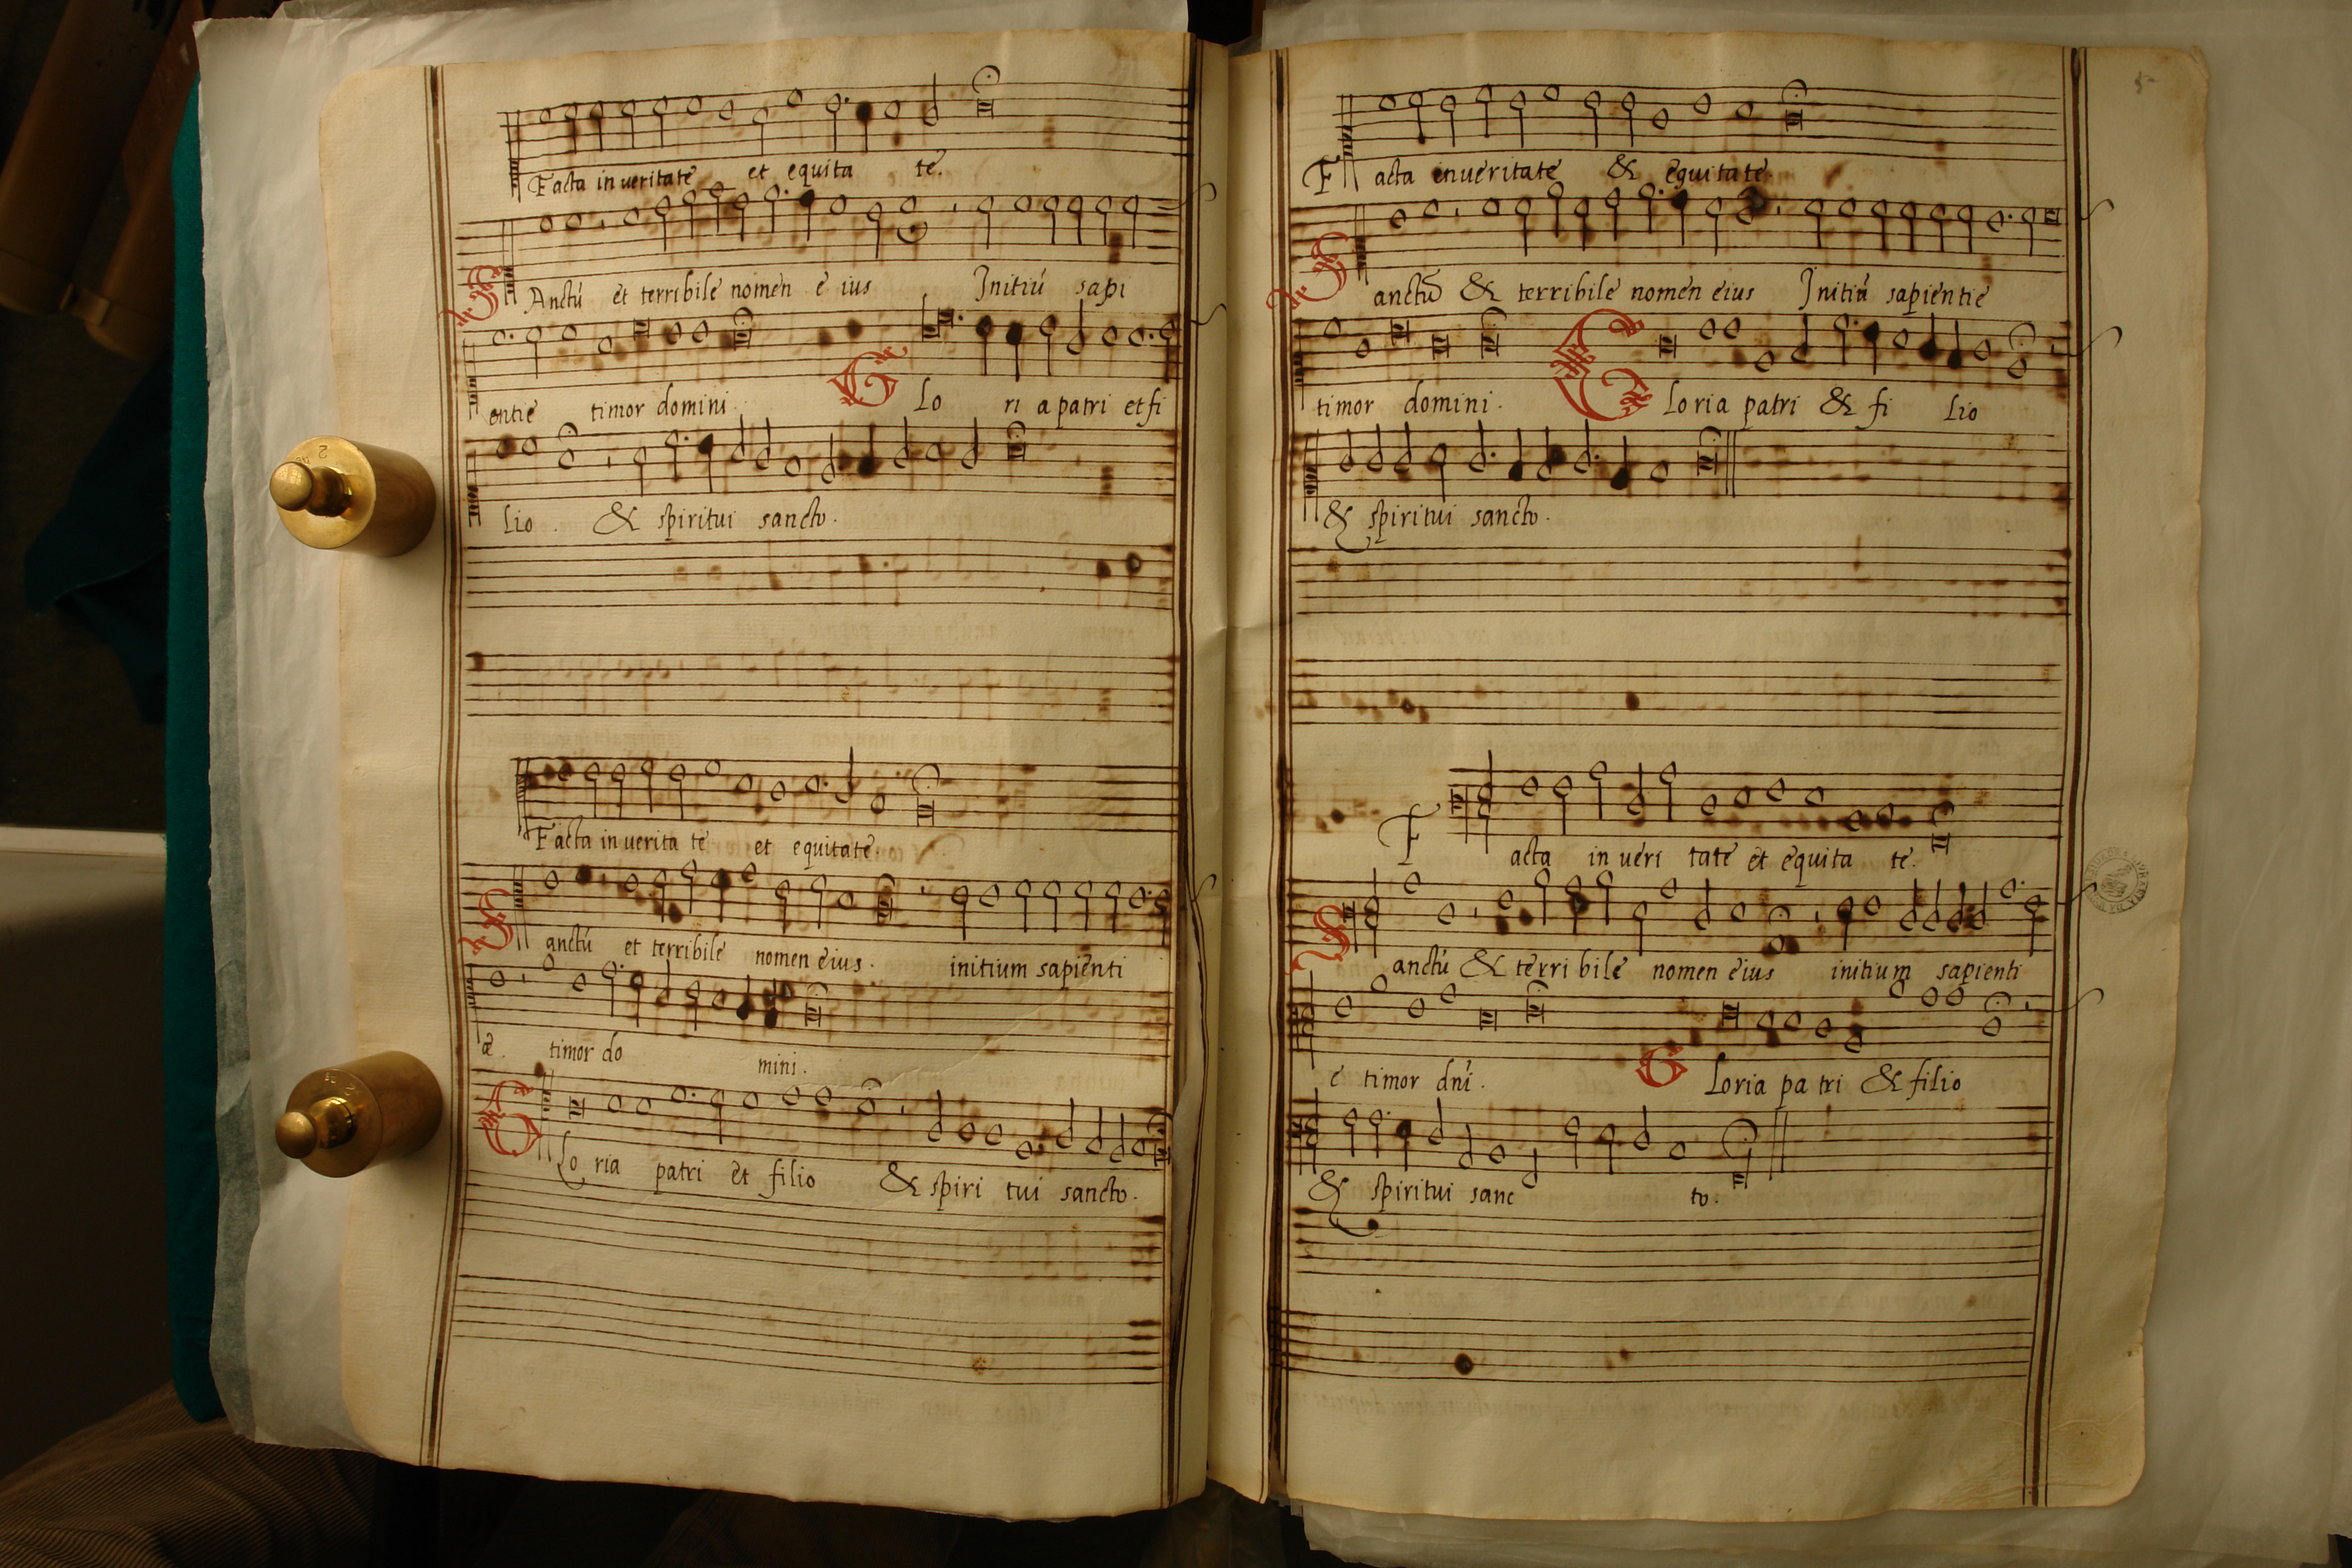 Facta in veritate et equita te.
SAnctú et terribile nomen e ius Initiú sapi
entie timor domini. Glo ri a patri et fi
lio. & spiritui sancto.
Facta in verita te et equitate
Sanctú et terribile nomen eius. initium sapienti
æ. timor do mini.
Glo ria patri et filio & spiri tui sancto.
5
Facta in veritate & equitate
Sanctũ & terribile nomen eius Initiú sapientie
timor domini. Gloria patri & fi lio
& spiritui sancto.
Facta in veri tate et equita te.
Sanctú & terri bile nomen eius initium sapienti
e timor dní. Gloria pa tri & filio
& spiritui sanc to.